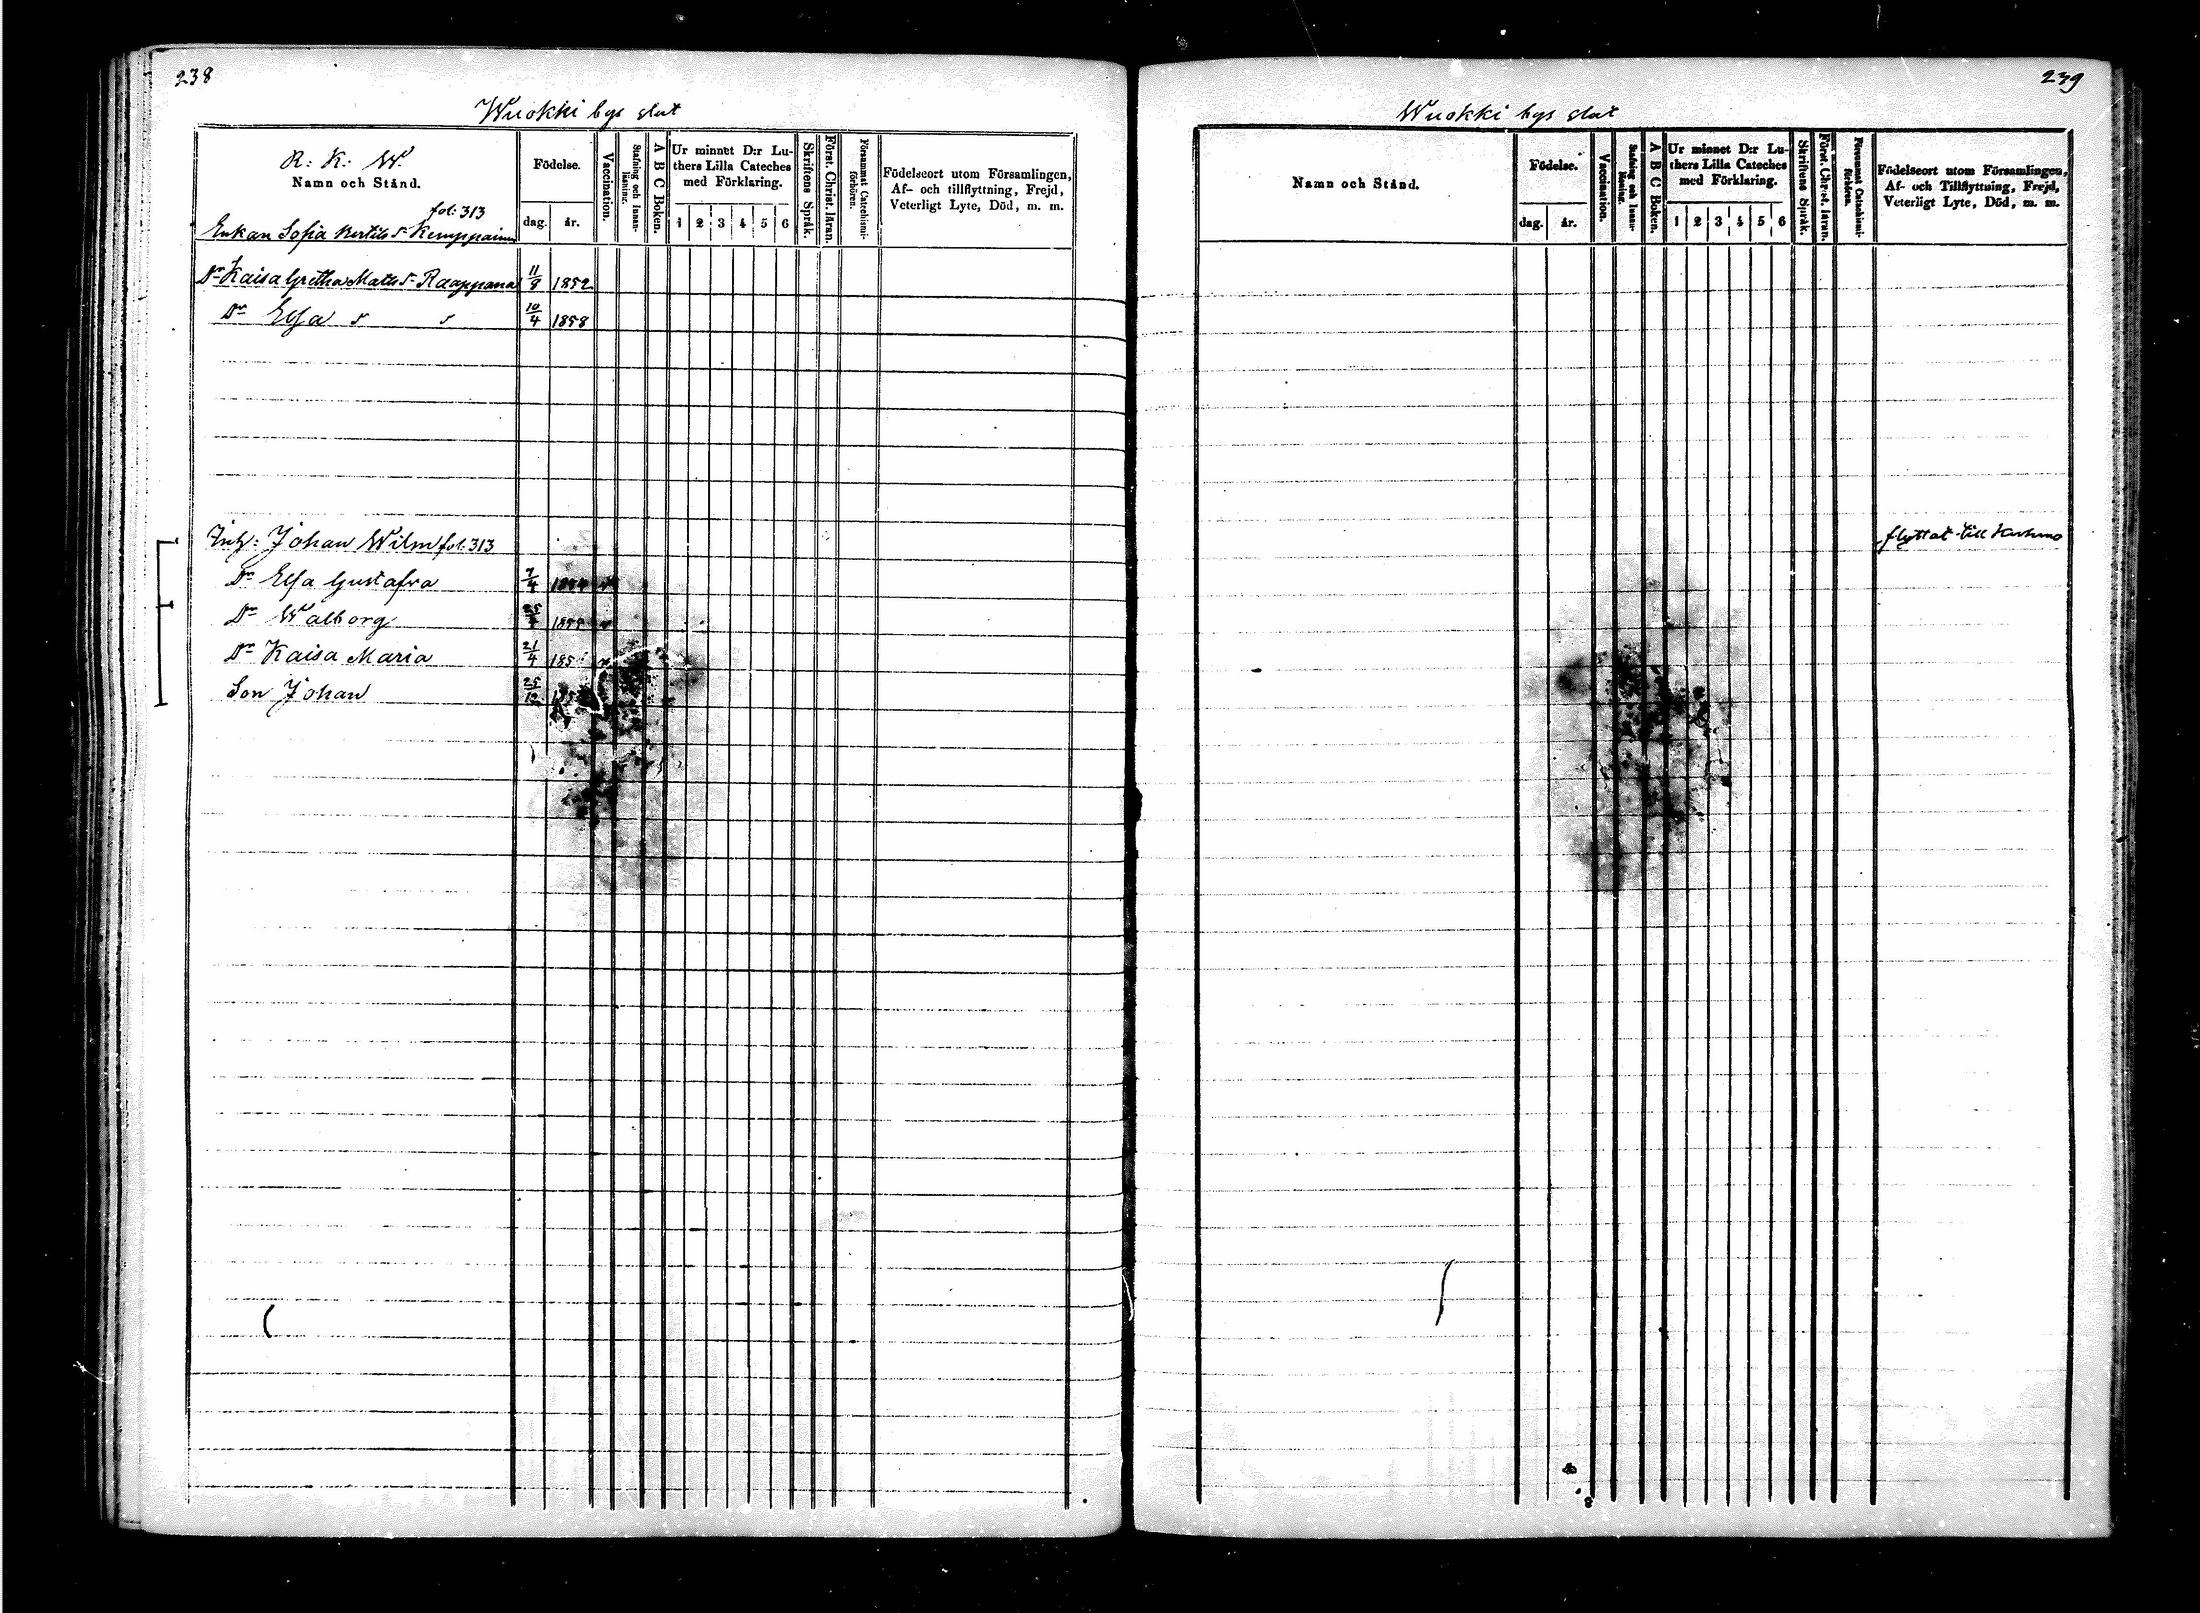 238
Wuokki bys slut
R: K: W.
Namn och Stånd.
Födelse.
dag. år.
Vaccination.
Stafning och Innanläsning.
A B C Boken.
Ur minnet D:r Luthers Lilla Cateches med Förklaring.
1 2 3 4 5 6
Skriftens Språk.
Först. Christ. läran.
Försummat Catechismiförhören.
Födelseort utom Församlingen,
Af- och tillflyttning, Frejd,
Veterligt Lyte, Död, m. m.
fol: 313
Enkan Sofia Bertils d: Kemppainen
Dr Kaisa Gretha Mats d: Raappana 11/8 1852
Dr Elsa 10/4 1858
Inh: Johan Wilm fol: 313
Dr Elsa Gustafva 7/4
Dr Walborg 1855
Dr Kaisa Maria 21/4
Son Johan 25/12
239
Wuokki bys slut
Namn och Stånd.
Födelse.
dag. år.
Vaccination.
Stafning och Innanläsning.
A B C Boken.
Ur minnet D:r Luthers Lilla Cateches med Förklaring.
1 2 3 4 5 6
Skriftens Språk.
Först. Christ. läran.
Försummat Catechismiförhören.
Födelseort utom Församlingen,
Af- och Tillflyttning, Frejd,
Veterligt Lyte, Död, m. m.
flyttat till Kuhmo